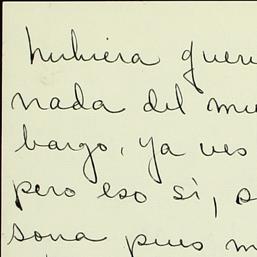 hubiera quer
nada del mu
bargo, ya ves
pero eso sí, s
sona pues m